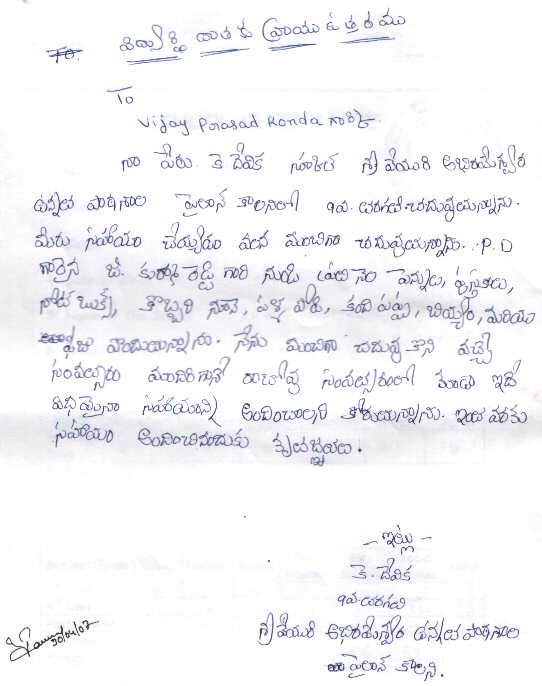 To.
విద్యార్థి దాతకు వ్రాయు ఉత్తరము
To
Vijay Prasad Konda గారికి
నా పేరు. కె దేవిక స్కూల్
ఉన్నత పాఠశాల పైలాన్ కాలనిలో 9వ. తరగతి చదువుచున్నాను.
మీరు సహాయం చేయ్యడం వలన మంచిగా చదువుచున్నాను. P.D
గారైన రెడ్డి గారి నుండి పెన్నులు, పుస్తకలు,
నోట్ బుక్స్, కొబ్బరి నూనె, పళ్ళ పొడి, కంది పప్పు, బియ్యం, మరియు
ఫీజు పొందుచున్నాను. నేను మంచిగా చదువు తాను వచ్చే
సంవత్సరం మాదిరిగానే రాబోవు సంవత్సరంలో కూడా ఇదే
విధమైనా సహాయాన్ని అందించాలని కోరుచున్నాను. ఇంత వరకు
సహాయం అందించినందుకు కృతజ్ఞతలు.
- ఇట్లు -
కె. దేవిక
9వ తరగతి
ఉన్నత పాఠశాల
పైలాన్ కాలని.
30/04/07